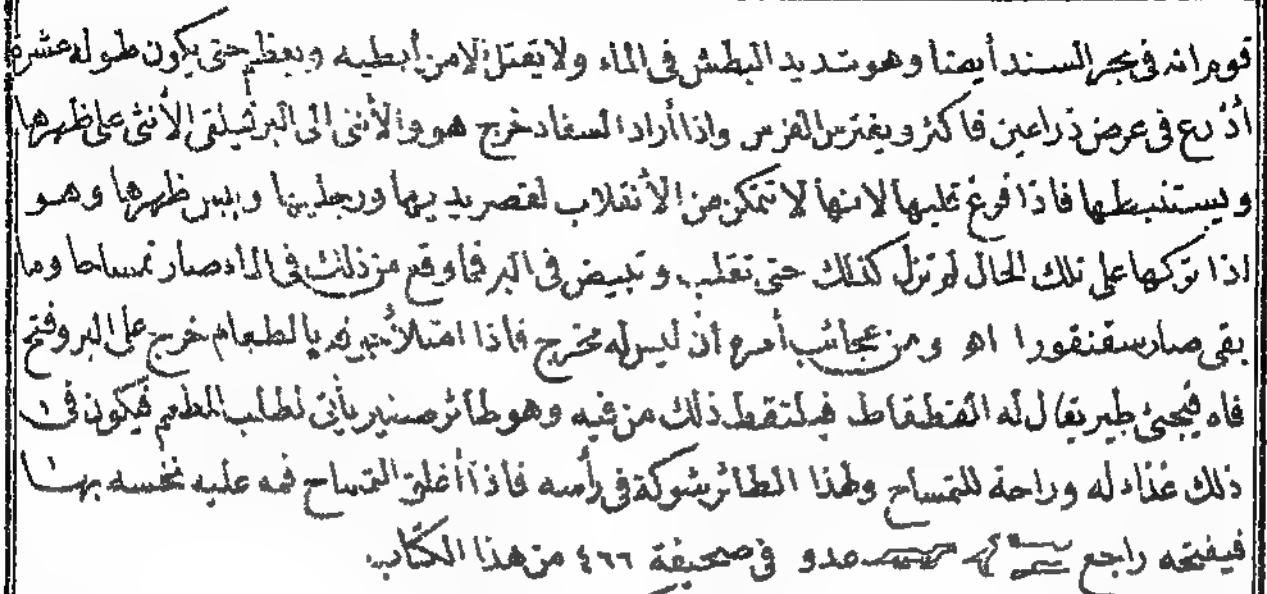 قوم انه فى بحر السند أيضا وهو شديد البطش فى الماء ولا يقتل الا من أبطيه ويعظم حتى يكون طوله عشرة
أذرع فى عرض ذراعين فاكثر ويفترس الفرس واذا أراد السفاد خرج هو والأنثى الى البر فيلقى الأنثى على ظهرها
ويستنبطها فاذا فرغ قلبها لانها لا تتمكن من الأنقلاب لقصر يديها ورجليها ويبس ظهرها وهو
اذا تركها على تلك الحال لم تزل كذلك حتى تقلب وتبيض فى البر فما وقع من ذلك فى الماء صار تمساحا وما
بقى صار سقنقورا اهـ ومن عجائب أمره أن ليس له مخرج فاذا امتلأ جوفه بالطعام خرج على البر وفتح
فاه فيجئ طير يقال له القطقاط فيلتقط ذلك من فيه وهو طائر صغير يأتى لطلب المطعم فيكون فى
ذلك غذاء له وراحة للتمساح ولهذا الطائر شوكة فى رأسه فاذا أغلق التمساح فمه عليه نخسه بها
فيفتحه راجع مدو فى صحيفة ٤٦٦ من هذا الكتاب